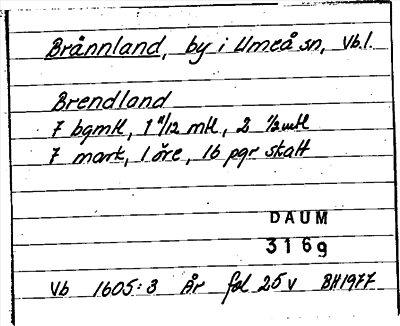 Brännland, by i Umeå sn, Vb.l.
Brendland
7 bgmtl, 1 11/12 mtl, 2 1/2 mtl
7 mark, 1 öre, 16 pgr skatt
DAUM
3169
Vb 1605:3 År fol 25v BH1977